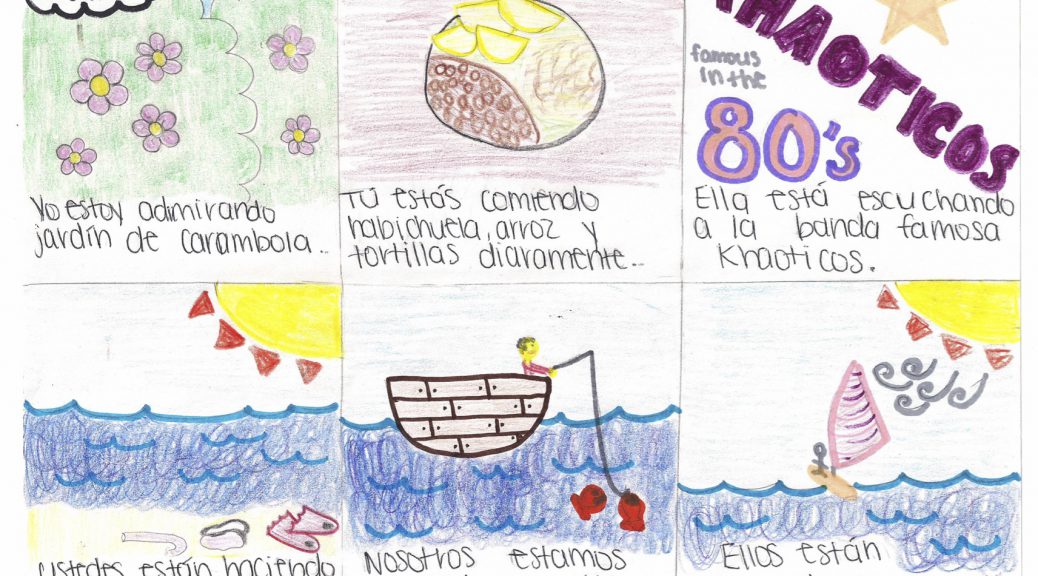 Yo estoy adimirando
jardín de carambola..
Tú estás comiendo
habichuela, arroz y
tortillas diaramente...
KHAOTICOS
famous
in the
80's
Ella está escuchando
a la banda famosa
Khaoticos.
Ustedes están haciendo
Nosotros estamos
Ellos están